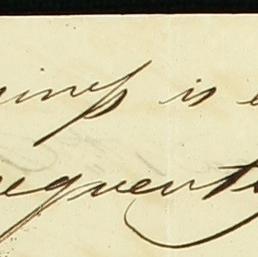 iness is e
requently